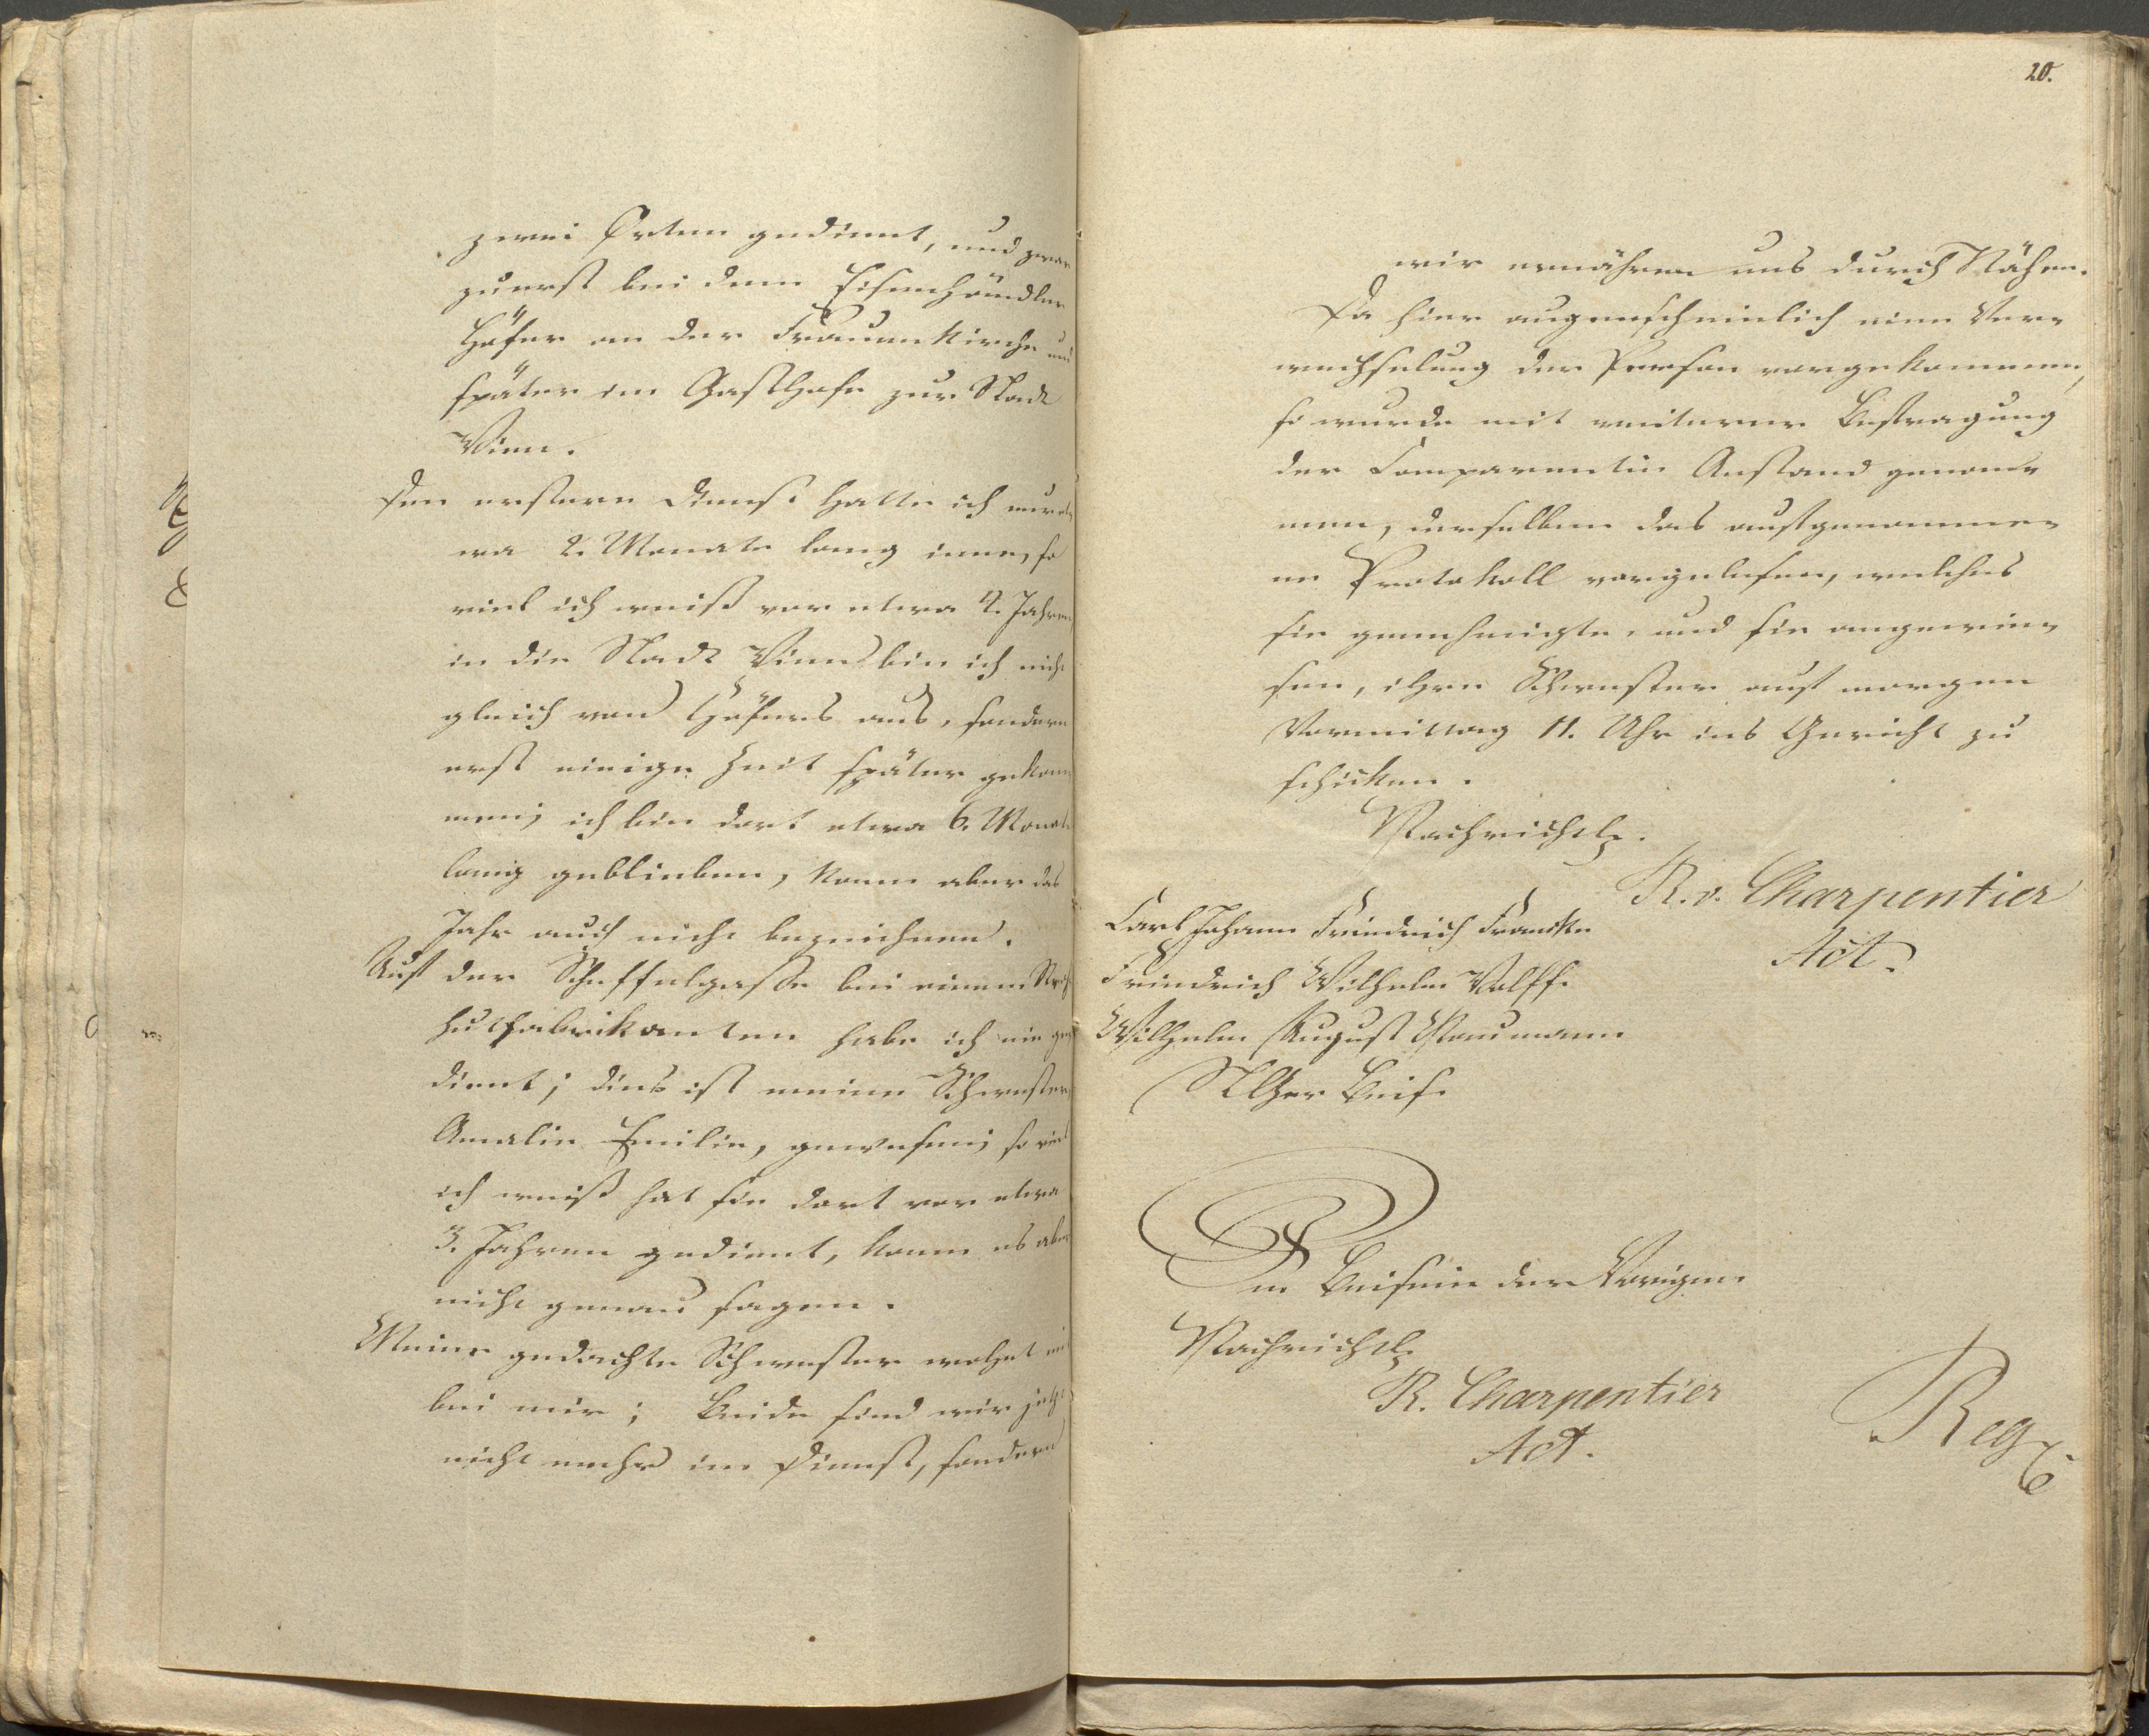 zwei Orten gedient, und zwar
zuerst bei dem Eisenhändler
Häser an der Frauenkirche und
später im Gasthofe zur Stadt
Wien.
Den erstern Dienst hatte ich nur et,
wa 2. Monate lang inne, so
viel ich weiß vor etwa 4. Jahren,
in die Stadt Wien bin ich nicht
gleich von Häsers aus, sondern
erst einige Zeit später gekom
men; ich bin dort etwa 6. Monate
lang geblieben, kann aber das
Jahr auch nicht bezeichnen.
Auf der Scheffelgasse bei einem Stroh
hutfabrikanten habe ich nie ge,
dient; dies ist meine Schwester,
Amalie Emilie, gewesen; so viel
ich weiß hat sie dort vor etwa
3. Jahren gedient, kann es aber
nicht genau sagen.
Meine gedachte Schwester wohnt mit
bei mir; Beide sind wir jetzt
nicht mehr im Dienst, sondern
20.
wir ernähren uns durch Nähen.
Da hier augenscheinlich eine Ver,
wechselung der Person vorgekommen,
so wurde mit weiterer Befragung
der Comparentin Anstand genom,
men, derselben das aufgenomme,
ne Protokoll vorgelesen, welches
sie genehmigte, und sie angewie,
sen, ihre Schwester auf morgen
Vormittag 11. Uhr ins Gericht zu
schicken.
Nachrichtl.
R. v. Charpentier
Act.
Carl Johann Friedrich Francke
Friedrich Wilhelm Wolff.
Wilhelm August Naumann
StGer Beis.
In Beisein der Vorigen.
Nachrichtl.
R. Charpentier
Act.
Reg.